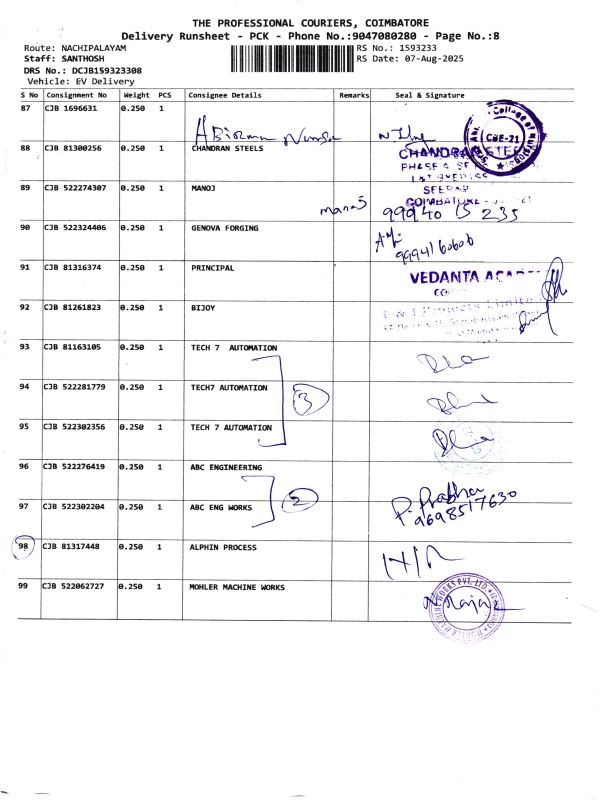 THE PROFESSIONAL COURIERS, COIMBATORE
Delivery Runsheet - PCK - Phone No.:9047080280 - Page No.:8
Route: NACHIPALAYAM
RS No.: 1593233
Staff: SANTHOSH
RS Date: 07-Aug-2025
DRS No.: DCJB159323308
Vehicle: EV Delivery
S No Consignment No Weight PCS Consignee Details Remarks Seal & Signature
87 CJB 1696631 0.250 1
College of
CBE-21
88 CJB 81300256 0.250 1 CHANDRAN STEELS
CHANDRAN STEE
PHASE
89 CJB 522274307 0.250 1 MANOJ
COIMBATORE
manoj 99940 15235
90 CJB 522324406 0.250 1 GENOVA FORGING
9994160606
91 CJB 81316374 0.250 1 PRINCIPAL
VEDANTA ACA
92 CJB 81261823 0.250 1 BIJOY
93 CJB 81163105 0.250 1 TECH 7 AUTOMATION
94 CJB 522281779 0.250 1 TECH7 AUTOMATION
3
95 CJB 522302356 0.250 1 TECH 7 AUTOMATION
96 CJB 522276419 0.250 1 ABC ENGINEERING
97 CJB 522302204 0.250 1 ABC ENG WORKS
2
P. Prabhu
9698517630
98 CJB 81317448 0.250 1 ALPHIN PROCESS
99 CJB 522062727 0.250 1 MOHLER MACHINE WORKS
WORKS PVT. LTD.
N Raja